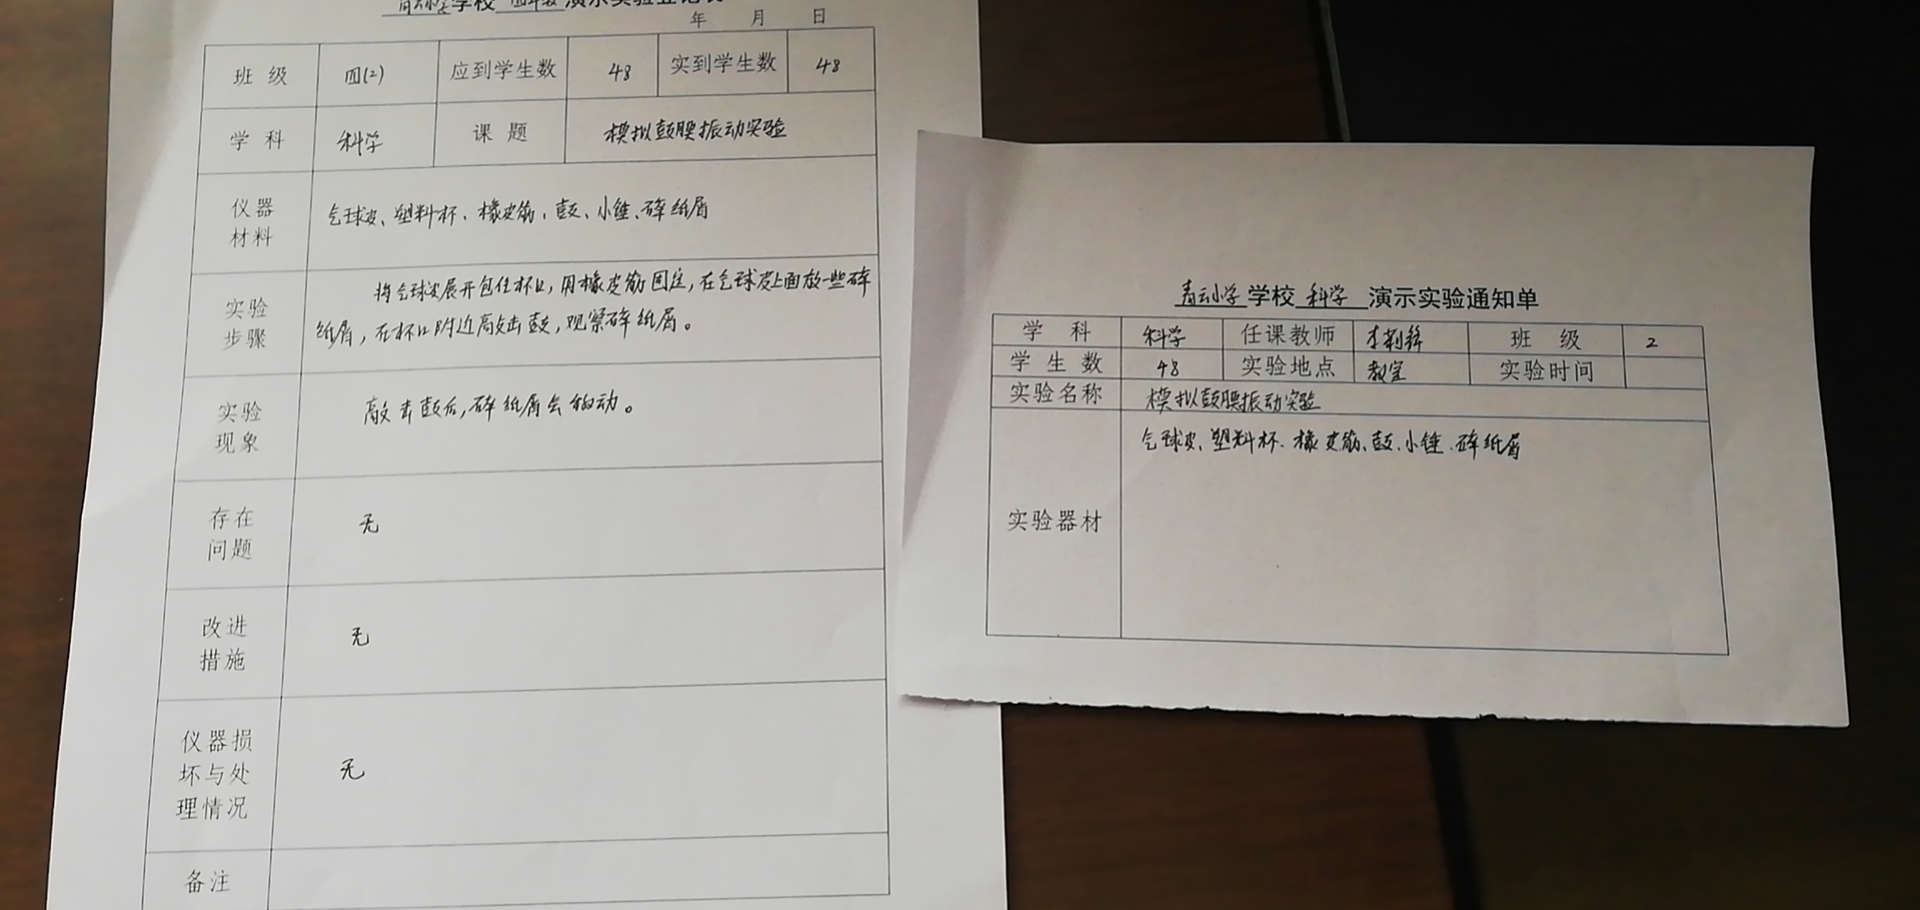 学校 演示实验登记表
年 月 日
班级 四(2) 应到学生数 48 实到学生数 48
学科 科学 课题 模拟鼓膜振动实验
仪器
材料
气球皮、塑料杯、橡皮筋、鼓、小锤、碎纸屑
实验
步骤
将气球皮展开包住杯口,用橡皮筋固定,在气球皮上面放一些碎
纸屑,在杯口附近敲击鼓,观察碎纸屑。
实验
现象
敲击鼓后,碎纸屑会跳动。
存在
问题
无
改进
措施
无
仪器损
坏与处
理情况
无
备注
青云小学 学校 科学 演示实验通知单
学科 科学 任课教师 班级 2
学生数 48 实验地点 教室 实验时间
实验名称 模拟鼓膜振动实验
实验器材 气球皮、塑料杯、橡皮筋、鼓、小锤、碎纸屑